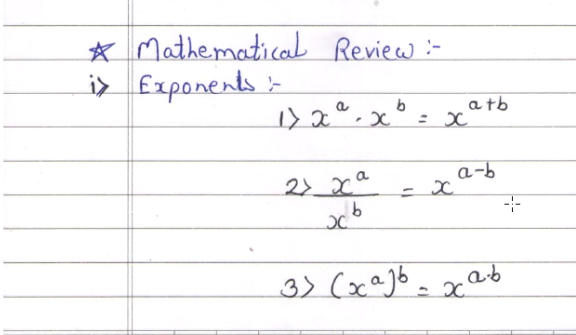 ☆ Mathematical Review :-
i> Exponents :-
1> x^a · x^b = x^(a+b)
2> x^a / x^b = x^(a-b)
3> (x^a)^b = x^(a·b)